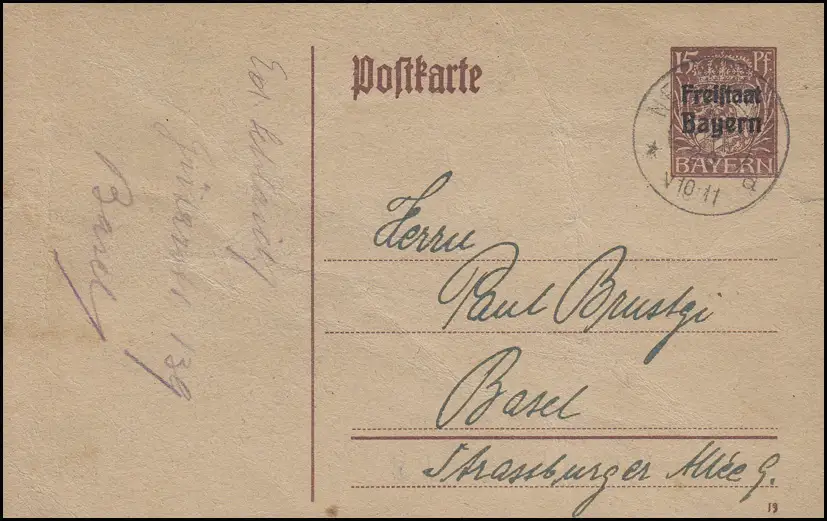 Postkarte
15 Pf
Freistaat
Bayern
BAYERN
V10-11
a
Herrn
Paul Brustgi
Basel
Strassburger Allée 9.
19
139
Basel